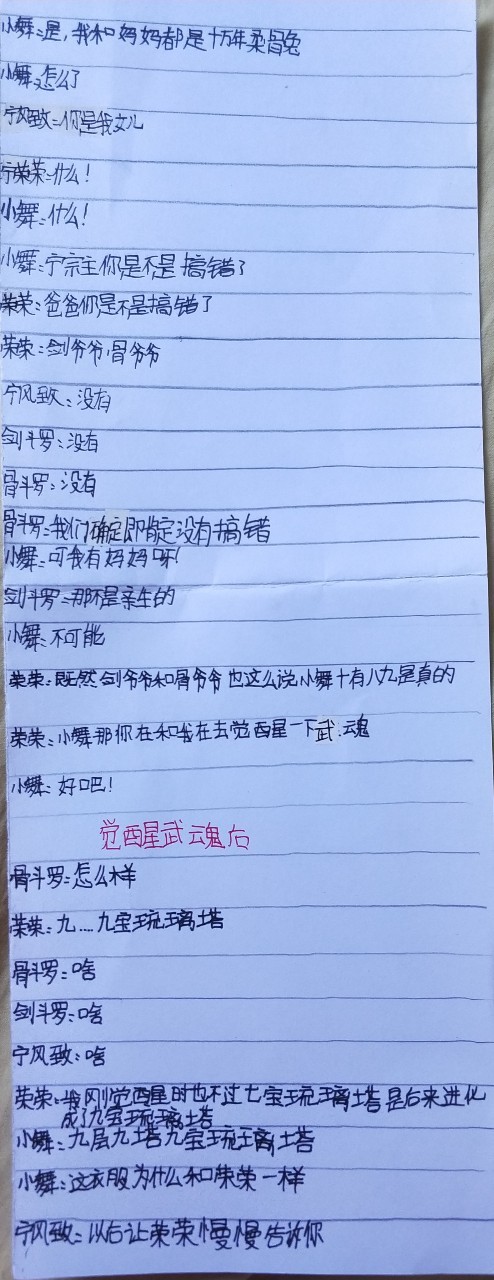 小舞:是,我和妈妈都是十万年柔骨兔
小舞:怎么了
宁风致:你是我女儿
宁荣荣:什么!
小舞:什么!
小舞:宁宗主你是不是搞错了
荣荣:爸爸你是不是搞错了
荣荣:剑爷爷,骨爷爷
宁风致:没有
剑斗罗:没有
骨斗罗:没有
骨斗罗:我们确定即肯定没有搞错
小舞:可我有妈妈呀!
剑斗罗:那不是亲生的
小舞:不可能
荣荣:既然剑爷爷和骨爷爷也这么说小舞十有八九是真的
荣荣:小舞那你在和我在去觉醒一下武魂
小舞:好吧!
觉醒武魂后
骨斗罗:怎么样
荣荣:九....九宝琉璃塔
骨斗罗:啥
剑斗罗:啥
宁风致:啥
荣荣:我刚觉醒时也不过七宝琉璃塔是后来进化
成了九宝琉璃塔
小舞:九层九塔九宝琉璃塔
小舞:这衣服为什么和荣荣一样
宁风致:以后让荣荣慢慢告诉你